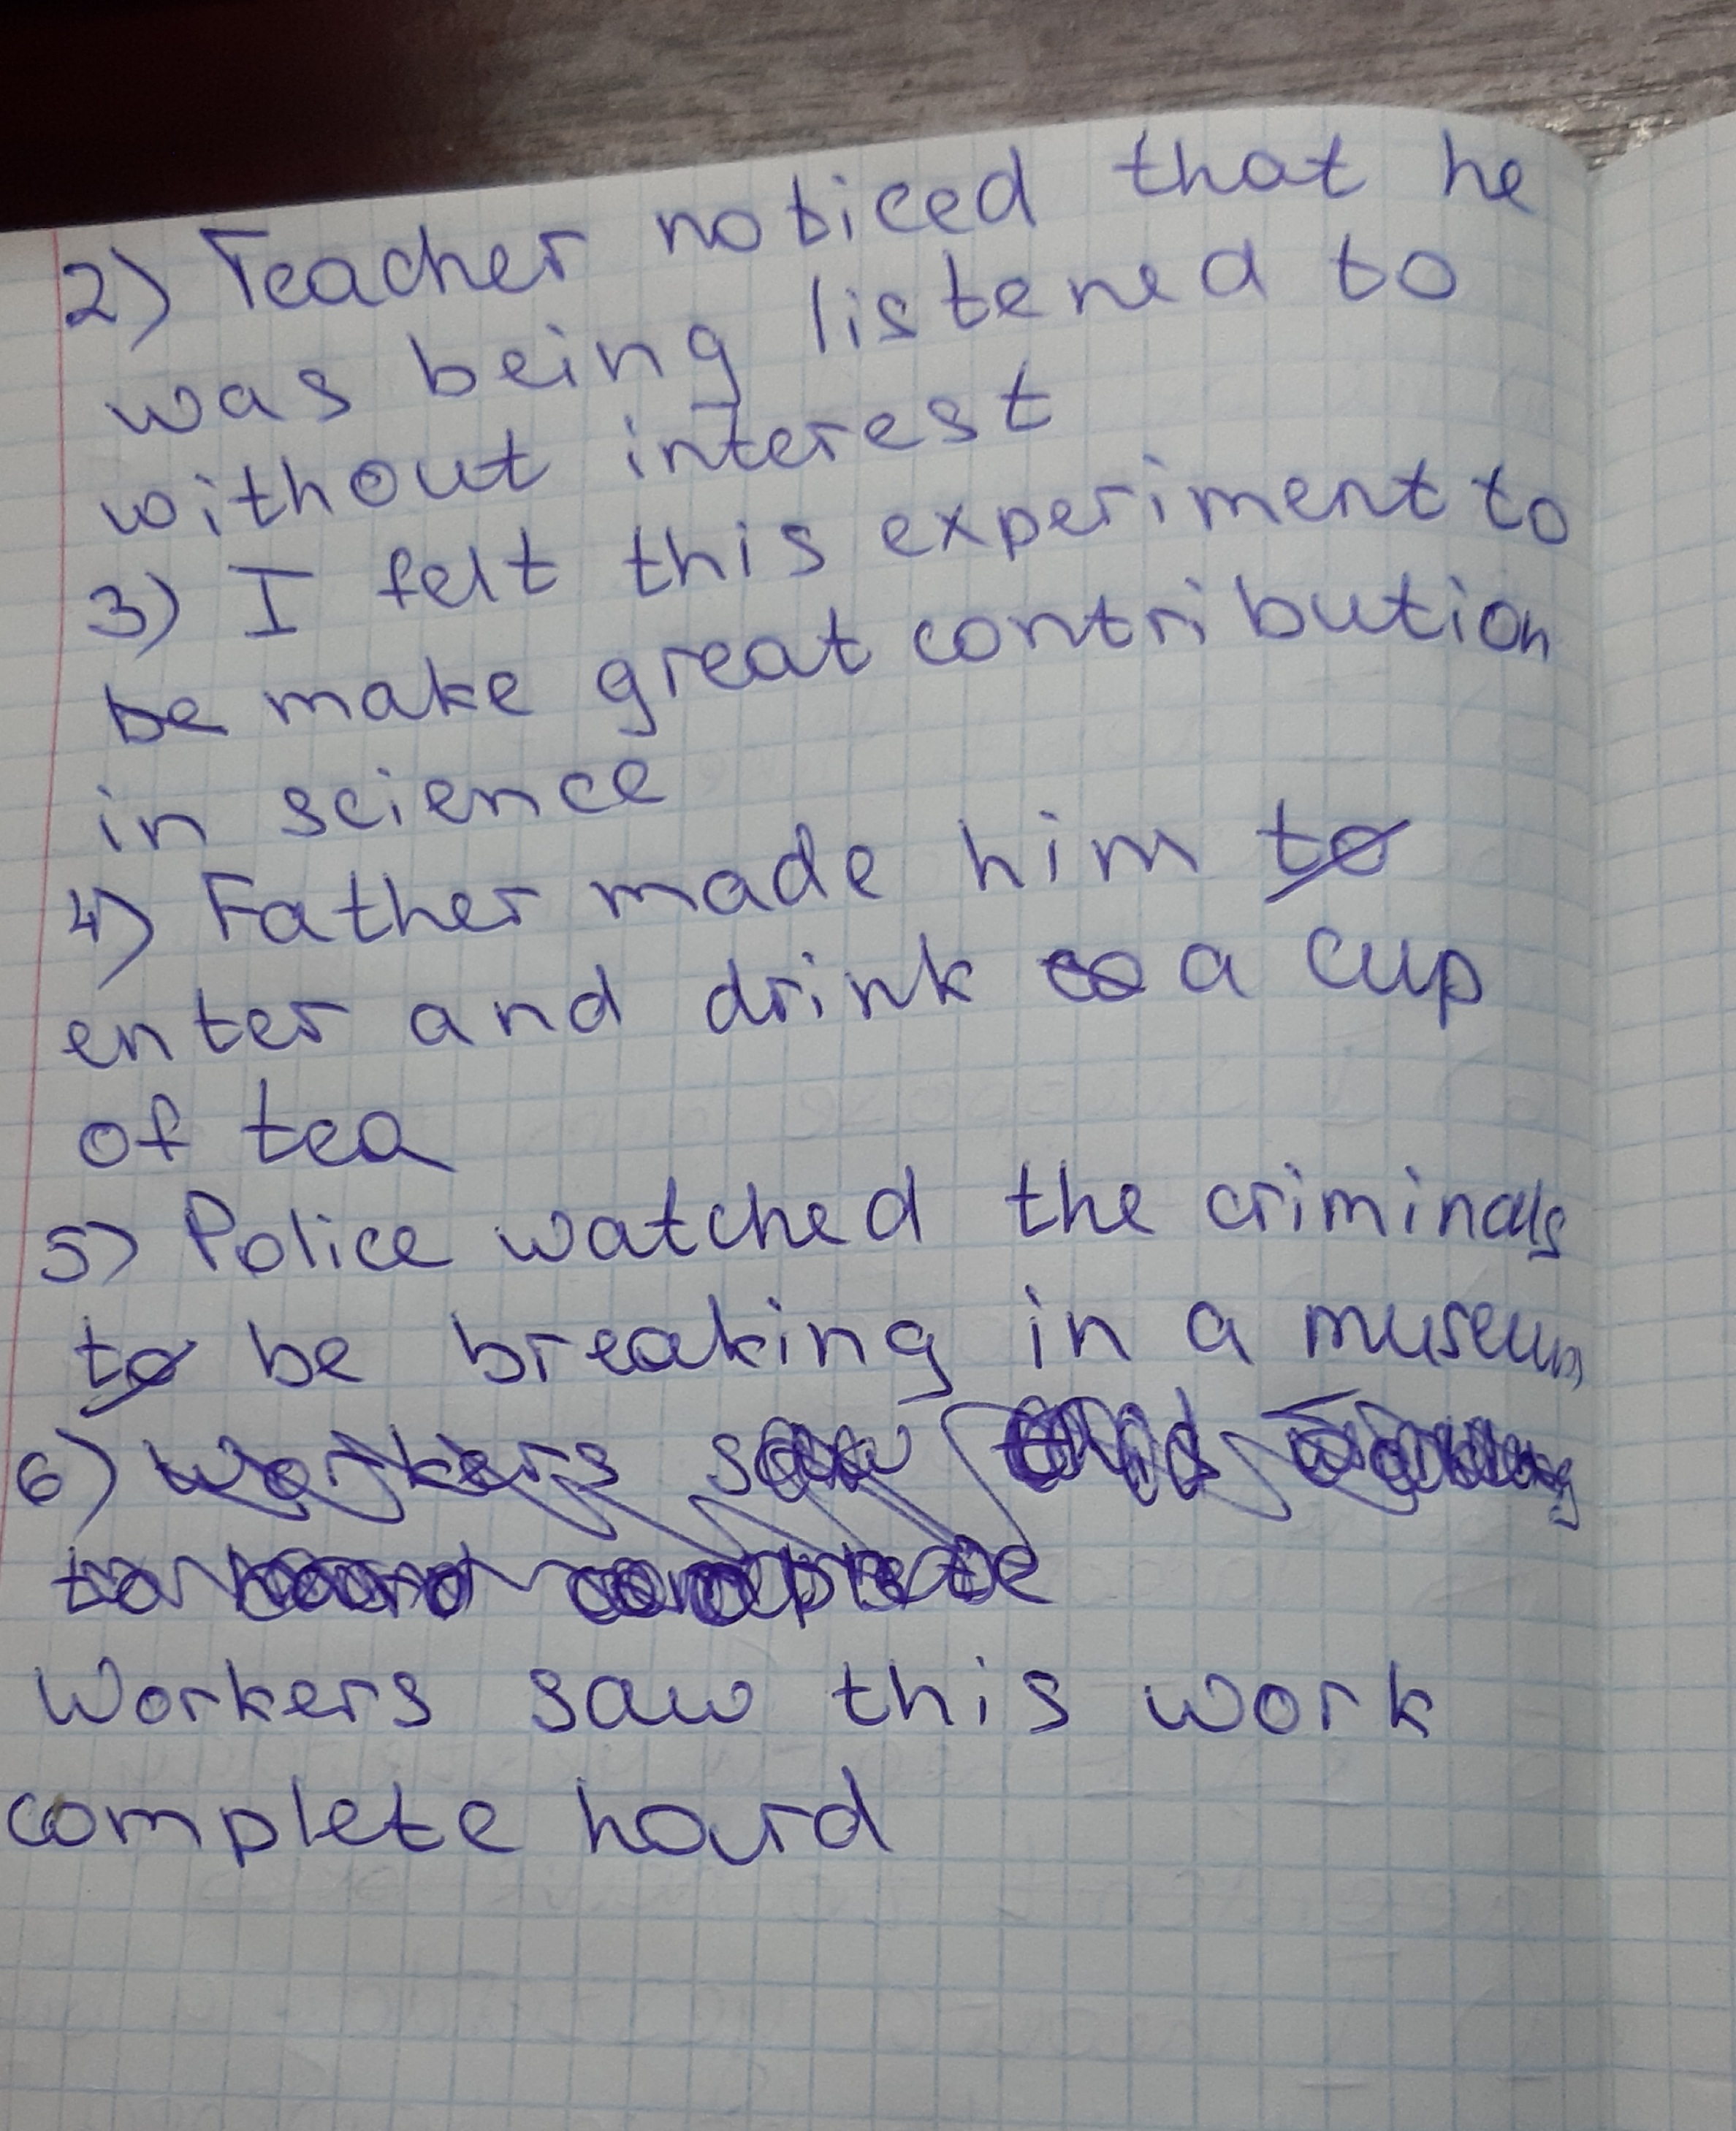 2) Teacher noticed that he
was being listened to
without interest
3) I felt this experiment to
be make great contribution
in science
4) Father made him to
enter and drink a cup
of tea
5) Police watched the criminals
to be breaking in a museum
6) Workers saw
to hard complete
Workers saw this work
complete hard